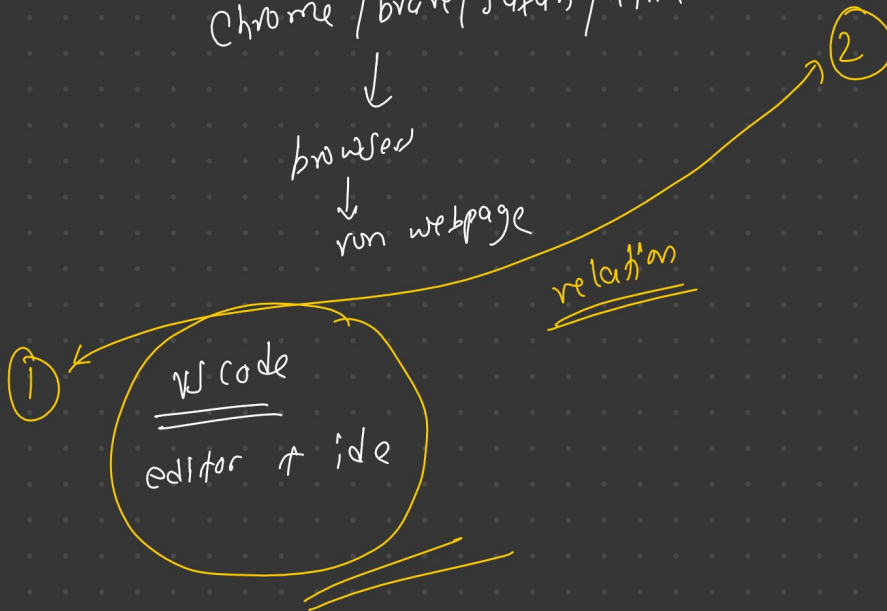 Chrome / brave / safari /
2
browser
run webpage
relation
1
VS code
editor + ide